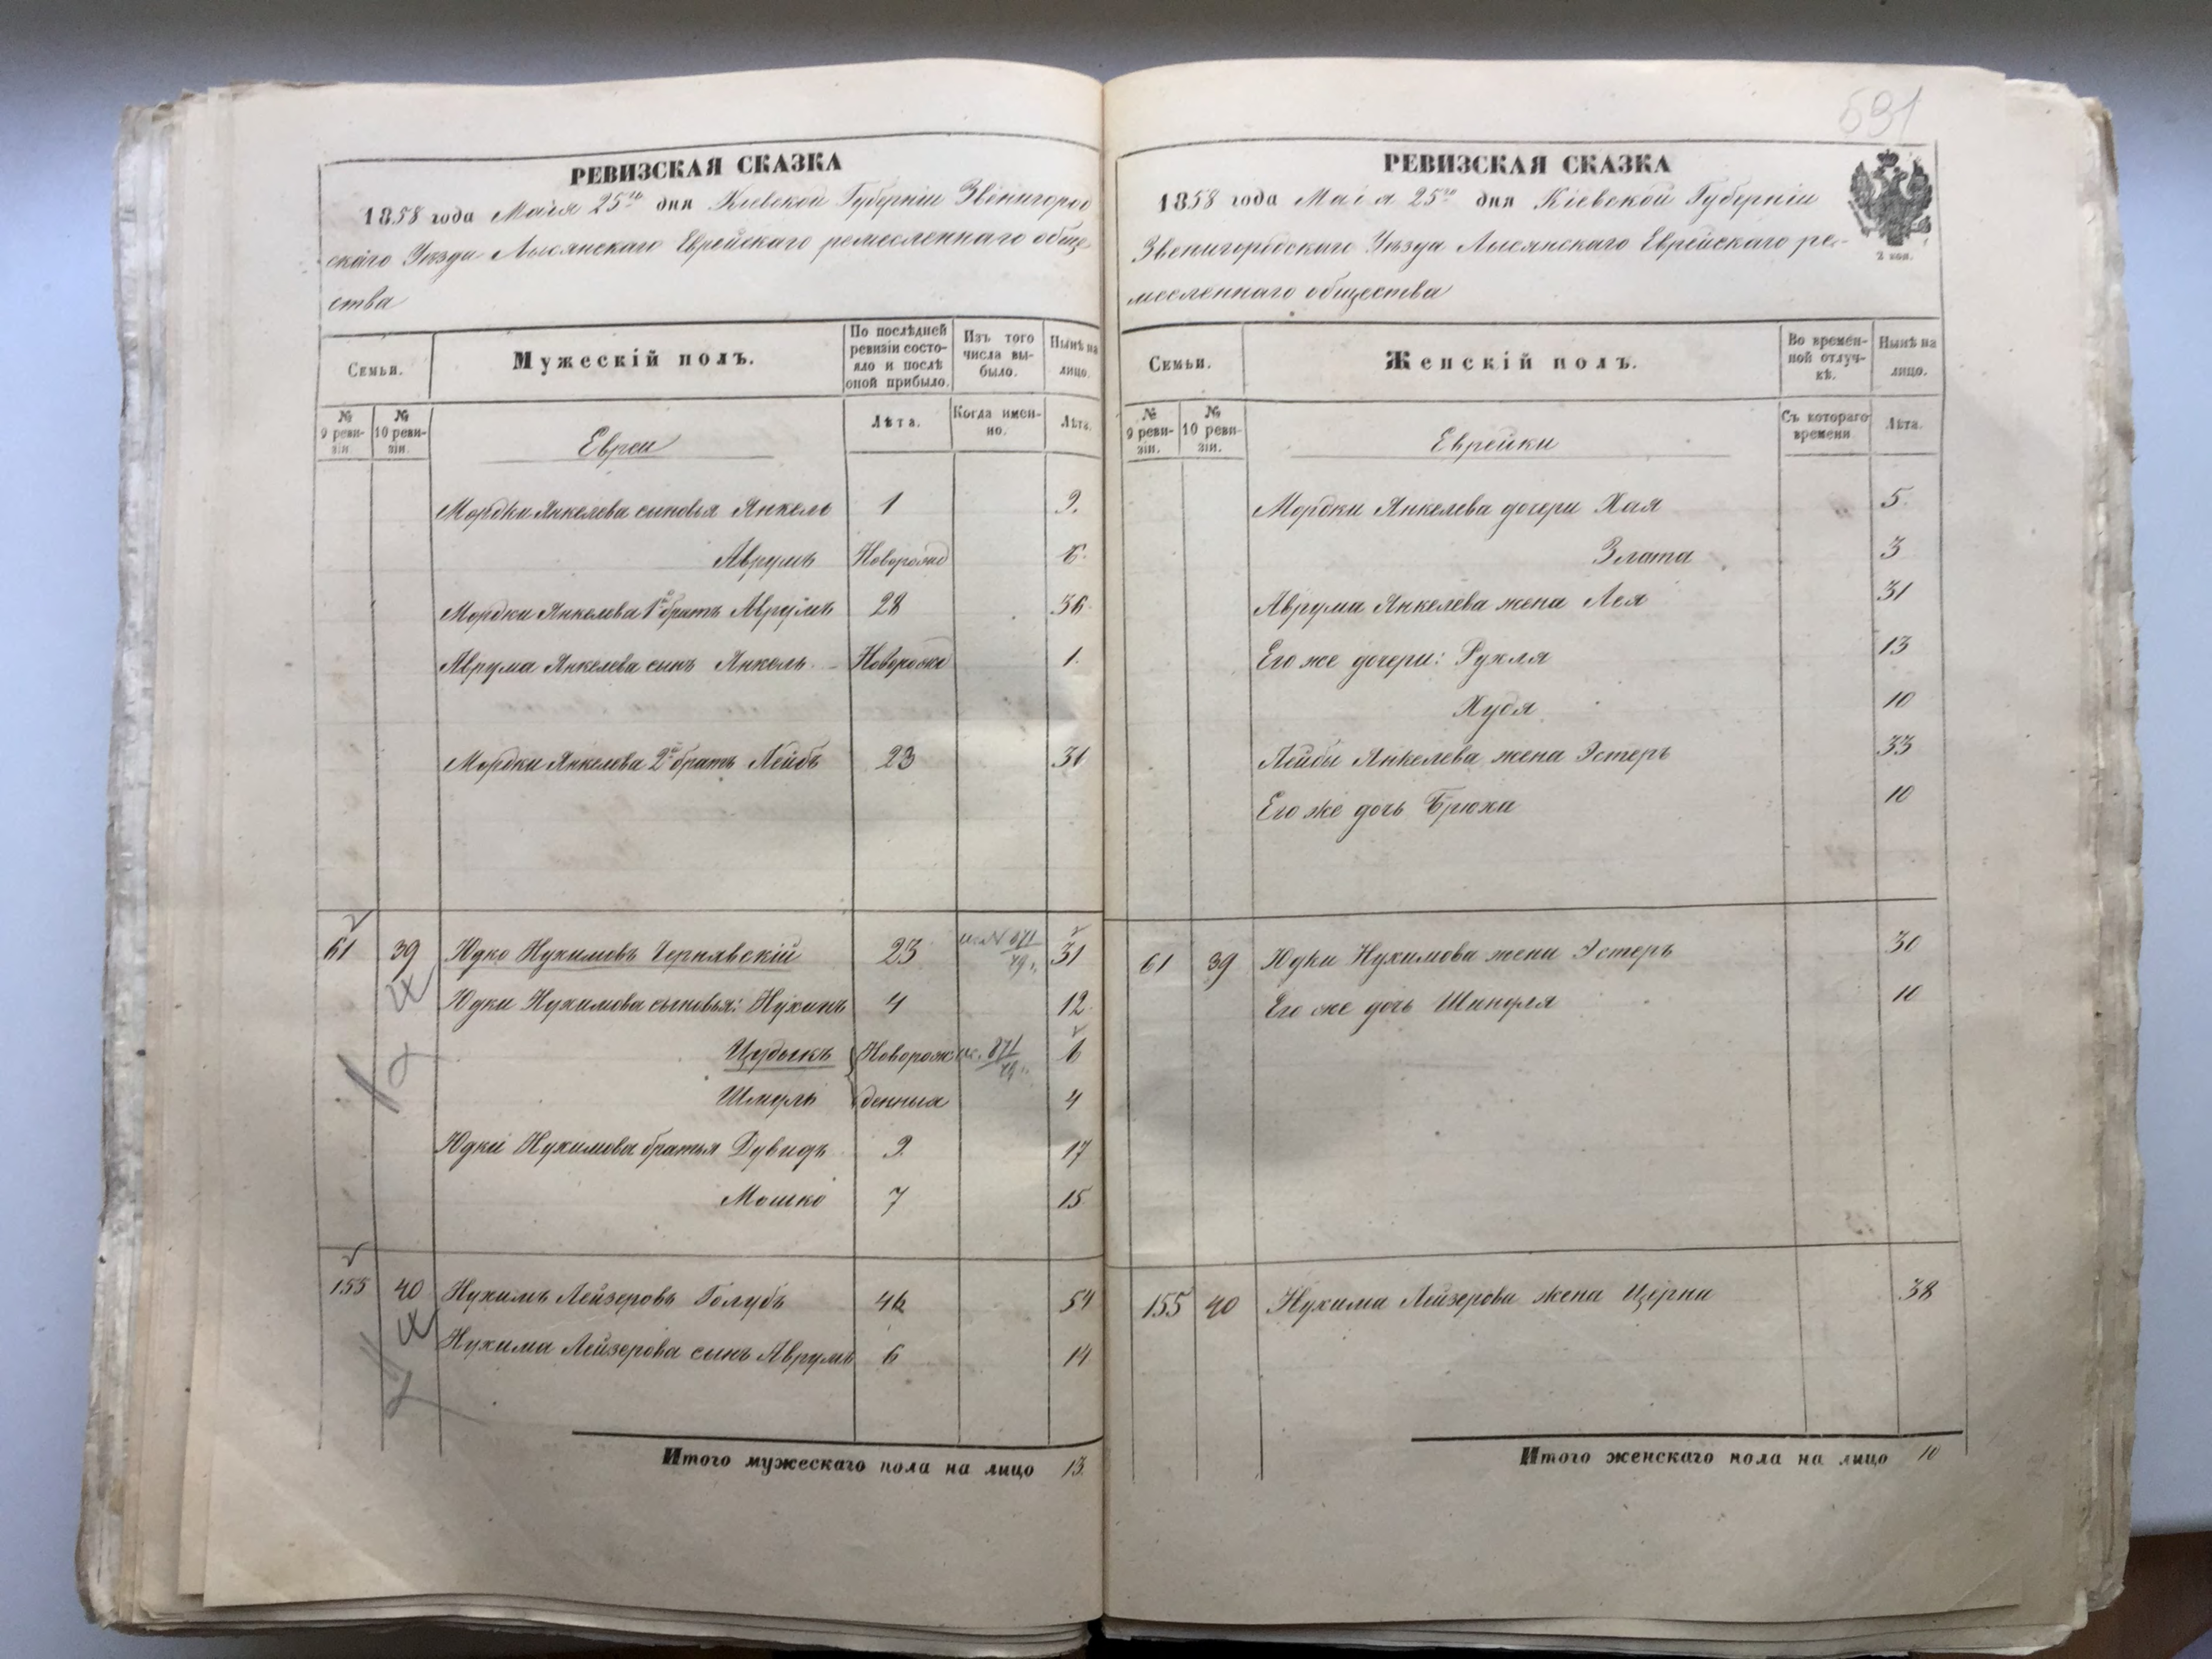 РЕВИЗСКАЯ СКАЗКА
1858 года Маія 25го дня Кіевской Губерніи Звенигород
скаго Уѣзда Лысянскаго Еврейскаго ремесленнаго обще
ства
Семьи.
Мужескій полъ.
По послѣдней ревизіи состояло и послѣ оной прибыло.
Изъ того числа выбыло.
Нынѣ на лицо.
№ 9 ревизіи.
№ 10 ревизіи.
Евреи
Лѣта.
Когда именно.
Лѣта.
Мордки Янкелева сыновья Янкель 1 9.
Аврумъ Новорожд 6.
Мордки Янкелева 1й братъ Аврумъ 28 36.
Аврума Янкелева сынъ Янкель Новорожд 1.
Мордки Янкелева 2й братъ Лейбъ 23 31
61 39 Юдко Нухимовъ Чернявскій 23 31
Юдки Нухимова сыновья: Нухимъ 4 12.
Цудыкъ Новорож 871 6
Шмуль денныя 4
Юдки Нухимова братья Дувидъ 9. 17
Мошко 7 15
155 40 Нухимъ Лейзеровъ Голубъ 46 54
Нухима Лейзерова сынъ Аврумъ 6 14
Итого мужескаго пола на лицо 13.
591
РЕВИЗСКАЯ СКАЗКА
1858 года Маія 25го дня Кіевской Губерніи
Звенигородскаго Уѣзда Лысянскаго Еврейскаго ре-
месленнаго общества
2 коп.
Семьи.
Женскій полъ.
Во временной отлучкѣ.
Нынѣ на лицо.
№ 9 ревизіи.
№ 10 ревизіи.
Еврейки
Съ котораго времени
Лѣта.
Мордки Янкелева дочери Хая 5.
Злата 3
Аврума Янкелева жена Лея 31
Его же дочери: Рухля 13
Худя 10
Лейбы Янкелева жена Эстеръ 33
Его же дочь Брюха 10
61 39 Юдки Нухимова жена Эстеръ 30
Его же дочь 10
155 40 Нухима Лейзерова жена Церна 38
Итого женскаго пола на лицо 10